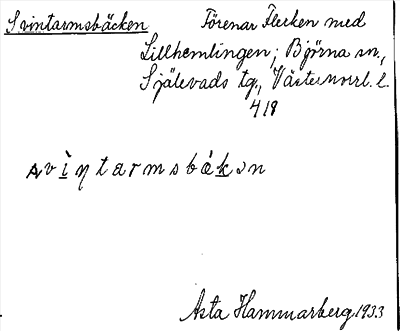 Svintarmsbäcken Förenar Flecken med
Lillhemlingen; Björna sn.,
Själevads tg., Västernorrl. l.
418
svìŋtarmsbákən
Asta Hammarberg 1933